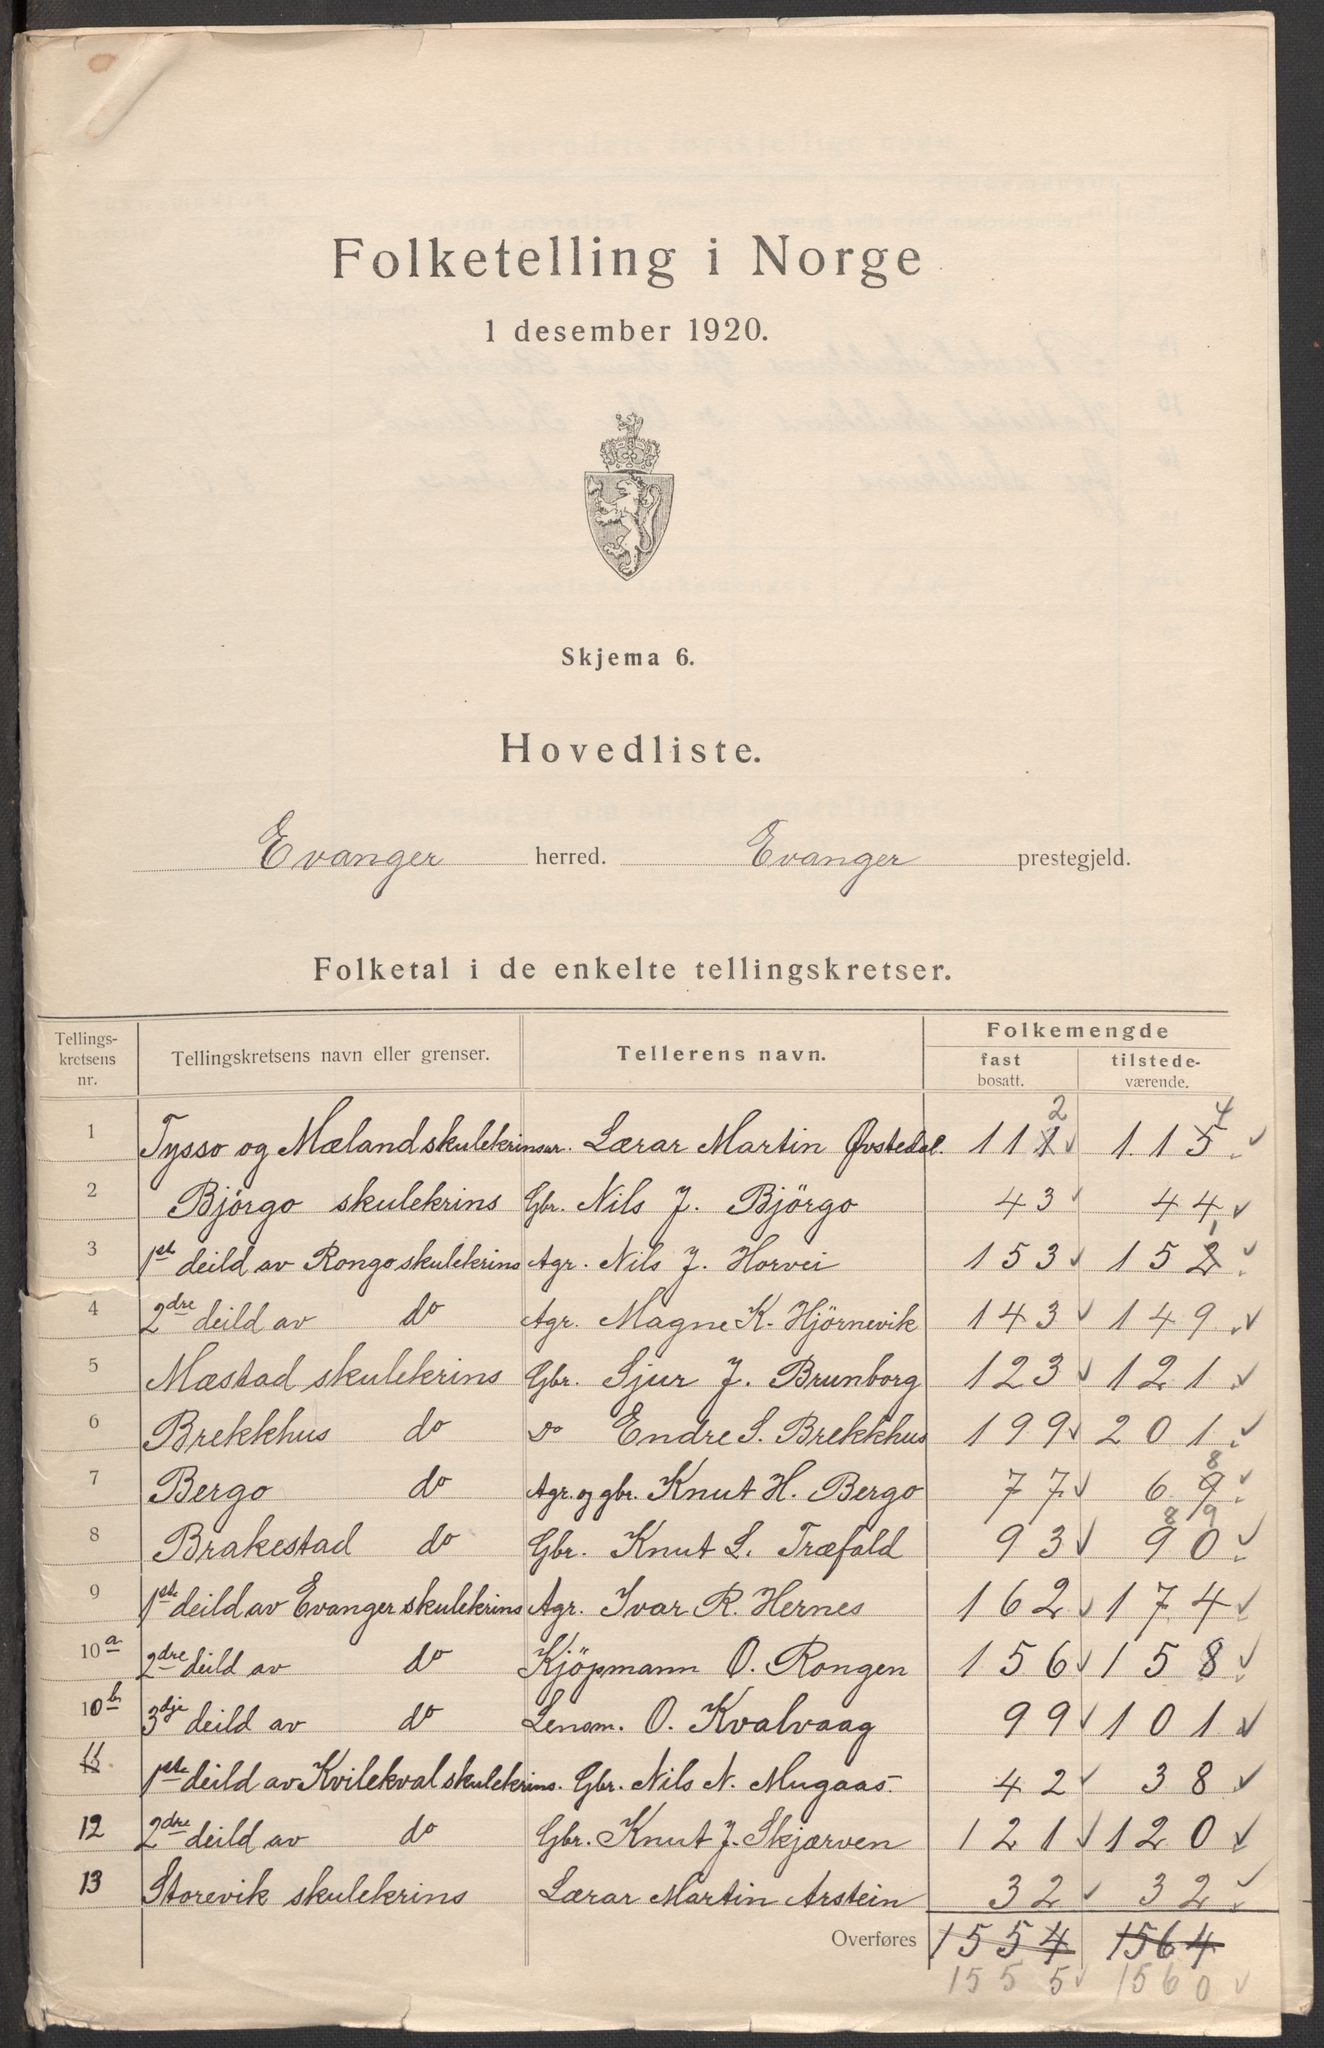 Folketelling i Norge
1 desember 1920.
Skjema 6.
Hovedliste.
Evanger herred. Evanger prestegjeld.
Folketal i de enkelte tellingskretser.
Tellings-
kretsens
nr.
Tellingskretsens navn eller grenser.
Tellerens navn.
Folkemengde
fast
bosatt.
tilstede-
værende.
2 4
1 Tysso og Mæland skulekrinsar. Lærar Martin Øvstedal. 111 115
2 Bjørgo skulekrins Gbr. Nils J. Bjørgo 43 44
1
3 1ste deild av Rongo skulekrins Agr. Nils J. Horvei 153 152
4 2dre deild av do Agr. Magne K. Hjørnevik 143 149
5 Mæstad skulekrins Gbr. Sjur J. Brunborg 123 121
6 Brekkhus do Do Endre S. Brekkhus 199 201
8
7 Bergo do Agr. og gbr. Knut H. Bergo 77 69
8 9
8 Brakestad do Gbr. Knut L. Træfald 93 90
9 1ste deild av Evanger skulekrins Agr. Ivar R. Hernes 162 174
10a 2dre deild av do Kjöpmann O. Rongen 156 158
10b 3dje deild av do Lensm. O. Kvalvaag 99 101
11 1ste deild av Kvilekval skulekrins. Gbr. Nils N. Mugaas 42 38
12 2dre deild av do Gbr. Knut J. Skjærven 121 120
13 Storevik skulekrins Lærar Martin Arstein 32 32
Overføres 1554 1564
1555 1560